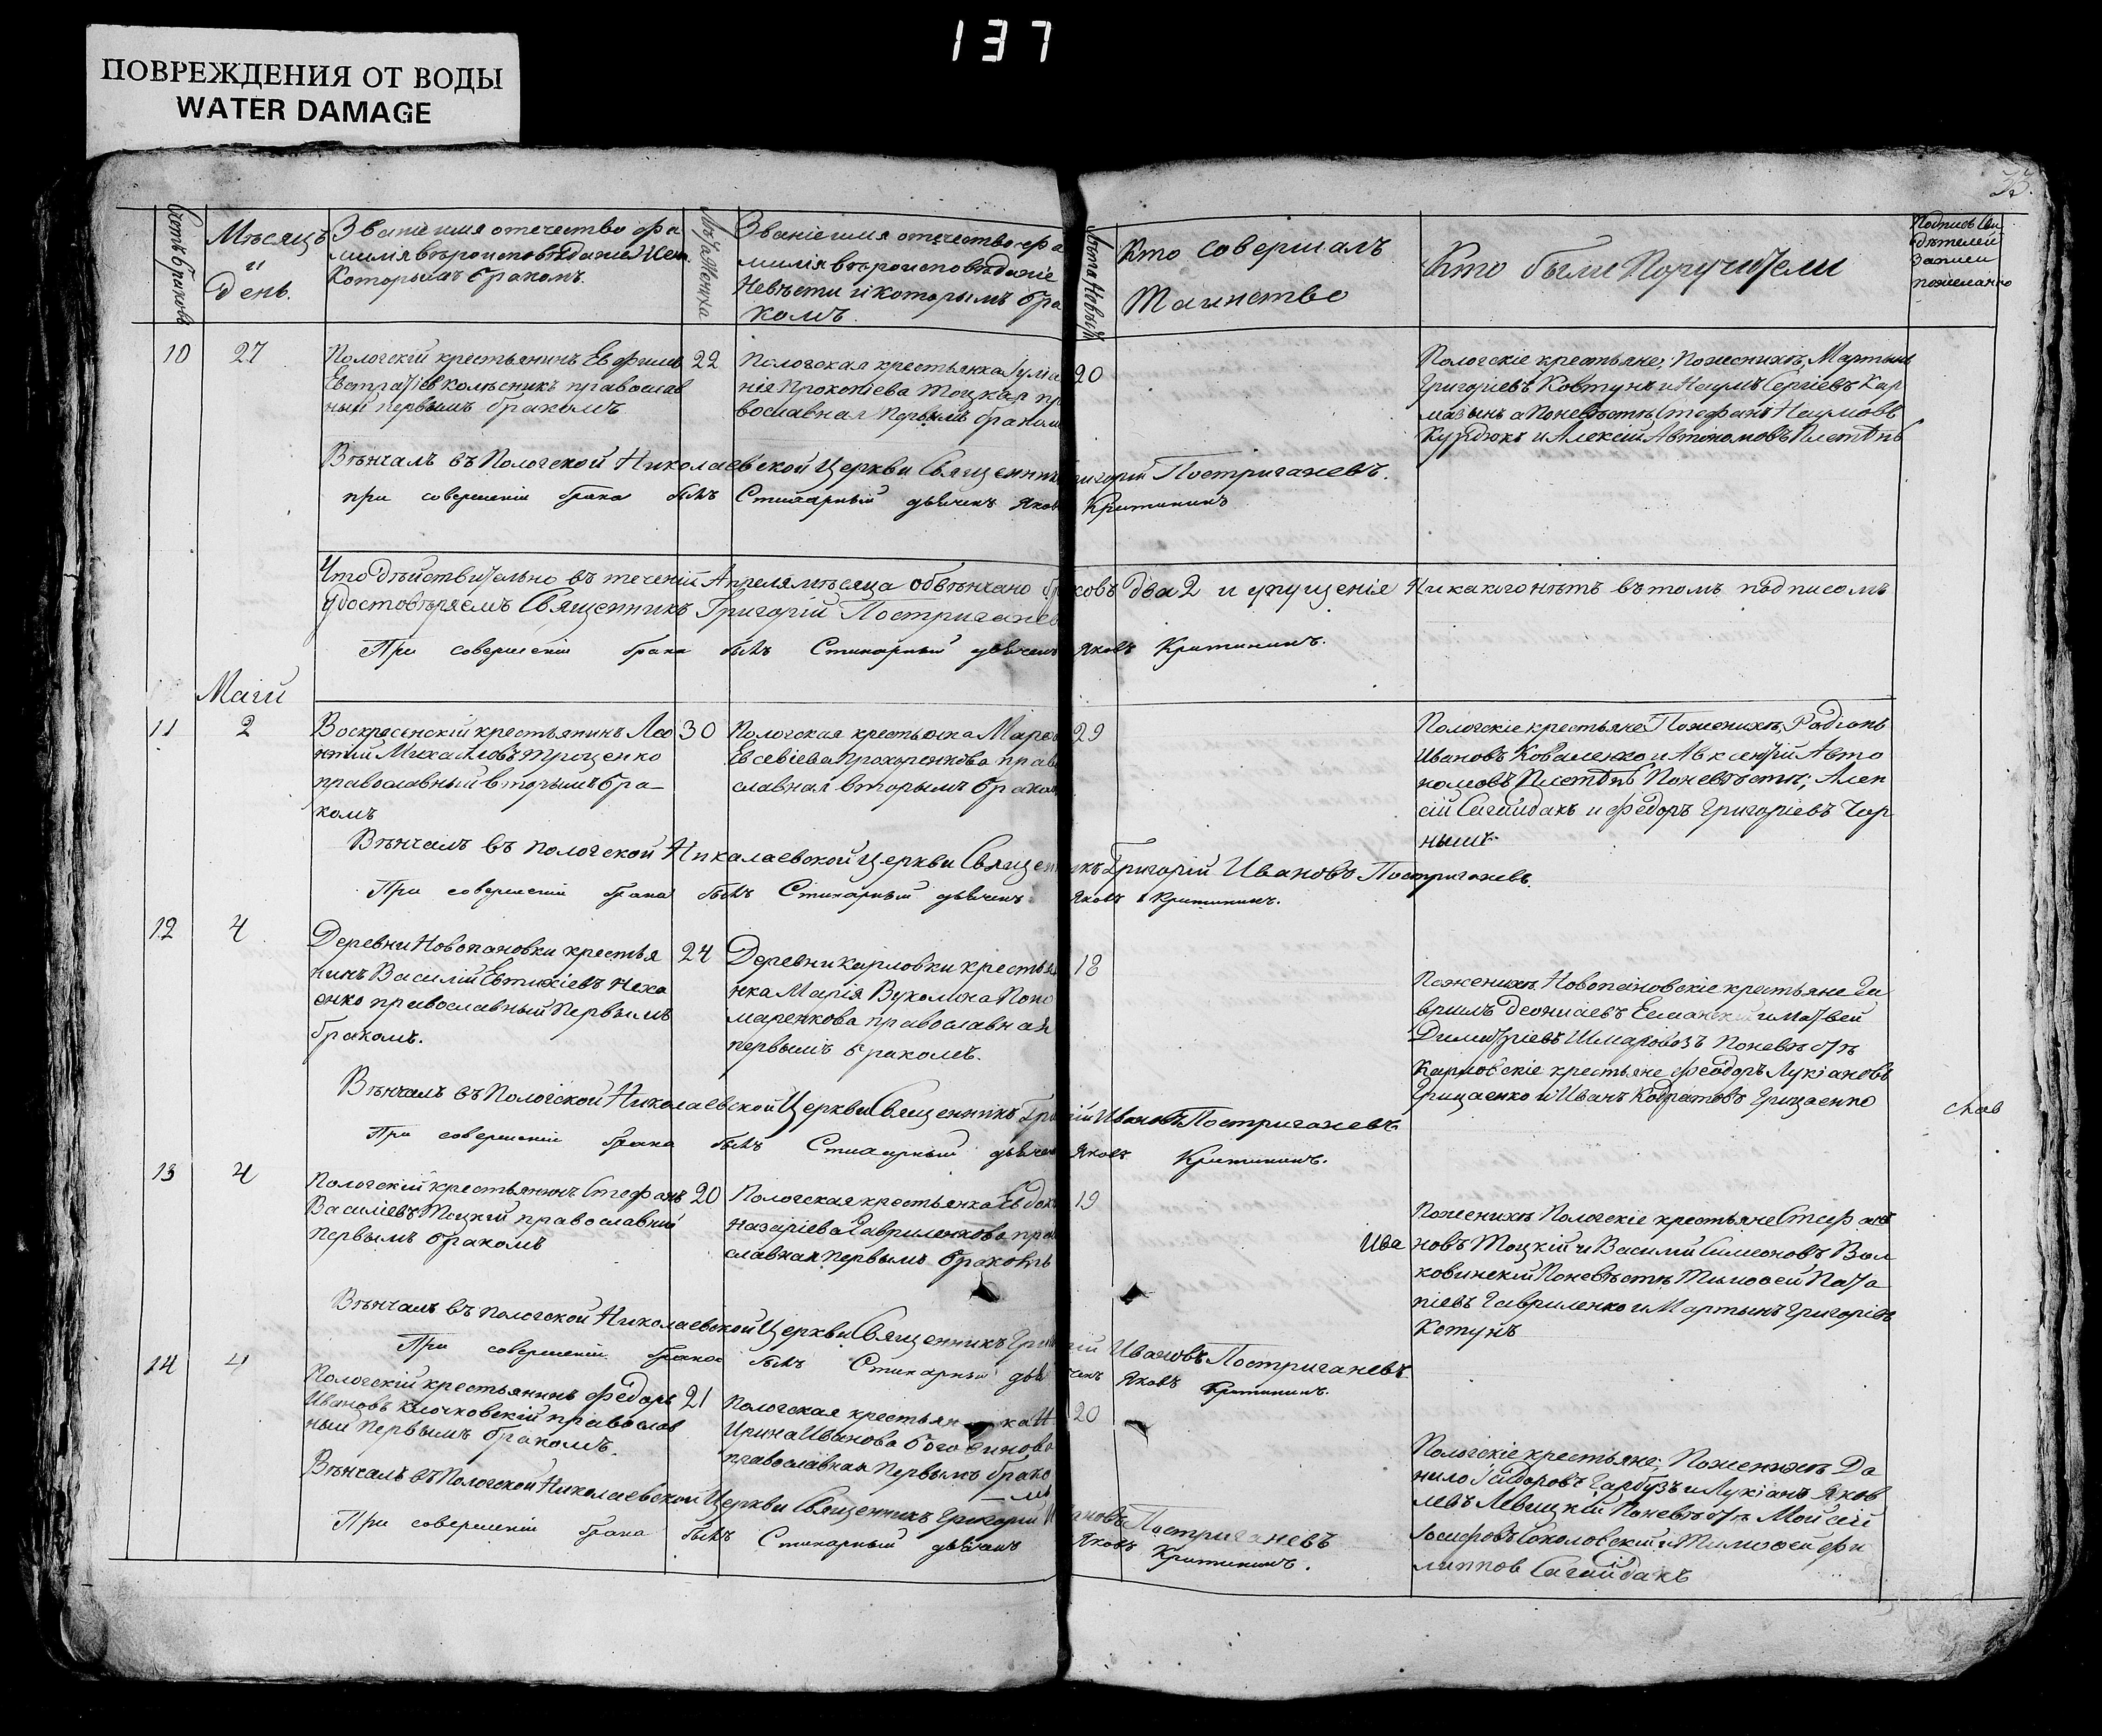 137
ПОВРЕЖДЕНИЯ ОТ ВОДЫ
WATER DAMAGE
33.
Счетъ браковъ
Мѣсяцъ
и
День.
Званіе имя отечество фа
милія вѣроисповѣданіе Жен.
Которымъ бракомъ.
Лѣта Жениха
Званіе имя отечество фа
милія вѣроисповѣданіе
Невѣсты и которымъ бра
комъ.
Лѣта Невѣсты
Кто совершалъ
Таинство
Кто были Поручители
Подпись Сви
дѣтелей
Записи
пожеланію
10
27
Пологскій крестьянинъ Евфимъ
Евстратіев колѣсникъ православ
ный первымъ бракомъ
22
Пологская крестьянка Іулиа
нія Прокопіева Тоцкая пр
вославная Первымъ браком
20
Пологскіе крестьяне; Поженихѣ, Мартынъ
Григоріевъ Ковтунъ и Наумъ Сергіевъ Кар
мазынъ а Поневѣстѣ Стефанъ Наумовъ
Курдюкъ и Алексій Автономовъ Плетѣнь
Вѣнчалъ въ Пологской Николаевской Церкви Священник Григорій Постригачевъ.
при совершеніи брака былъ Стихарный дьячекъ Яковъ Критининъ
Что дѣйствительно въ теченіи Апреля мѣсяца обвѣнчано браковъ два 2 и упущенія Никакого нѣтъ въ томъ подписомъ
Удостовѣряемъ Священникъ Григорій Постригачев
При совершеніи брака былъ Стихарный дьячекъ Яковъ Критининъ.
Маій
11
2
Воскресенскій крестьянинъ Лео
нтій Михайловъ Троценко
православный вторымъ бра-
комъ
30
Пологская крестьянка Марфа
Евсевіева Прохоренкова прав
славная вторымъ браком
29
Пологскіе крестьяне Поженихѣ; Радіонъ
Ивановъ Коваленко и Авксентій Авто
номовъ Плетѣнь Поневѣстѣ; Алек
сій Сагайдакъ и Феодоръ Григоріевъ Чер
ный
Вѣнчалъ въ Пологской Никалаевской Церкви Священникъ Григорій Ивановъ Постригачевъ.
При совершеніи брака былъ Стихарный дьячекъ Яковъ Критининъ.
12
4
Деревни Новопановки крестья
нинъ Василій Евтихіевъ Неха
енко православный Первымъ
бракомъ.
24
Деревни Карловки крестья
нка Марія Вуколина Поно
маренкова православная
первымъ бракомъ.
18
Поженихѣ Новопановскіе крестьяне Га
вриилъ и Матвей
Димитріевъ Поневѣстѣ
Карловскіе крестьяне Феодоръ Лукіановъ
Грицаенко и Иванъ Кодратовъ Грицаенко
Вѣнчалъ въ Пологской Николаевской Церкви Священникъ Григорій Ивановъ Постригачевъ.
При совершеніи брака былъ Стихарный дьячекъ Яковъ Критининъ.
13
4
Пологскій крестьянинъ Стефанъ
Василіевъ Тоцкій православный
Первымъ бракомъ
20
Пологская крестьянка Евдок
Назаріева Гавриленкова прав
славная первымъ бракомъ
19
Поженихѣ Пологскіе крестьяне Стефанъ
Ива новъ Тоцкій и Василій Симеоновъ Вол
ковинскій Поневѣстѣ Тимофей Пота
піевъ Гавриленко и Мартынъ Григоріевъ
Котунъ
Вѣнчалъ въ Пологской Николаевской Церкви Священникъ Григорій Ивановъ Постригачевъ.
При совершеніи брака былъ Стихарный дьячекъ Яковъ Критининъ.
14
4
Пологскій крестьянинъ Феодоръ
Ивановъ Клочковскій православ
ный Первымъ бракомъ.
21
Пологская крестьянка И
Ирина Иванова
православная Первымъ брако
мъ
20
Пологскіе крестьяне; Поженихѣ Да
нило Гарбузъ и Лукіанъ Яков
левъ Левицкій Поневѣстѣ Мойсей
Іосифовъ Соколовскій и Тимофей Фи
липпов Сагайдакъ
Вѣнчалъ въ Пологской Николаевской Церкви Священникъ Григорій Ивановъ Постригачевъ
При совершеніи брака былъ Стихарный дьячекъ Яковъ Критининъ.